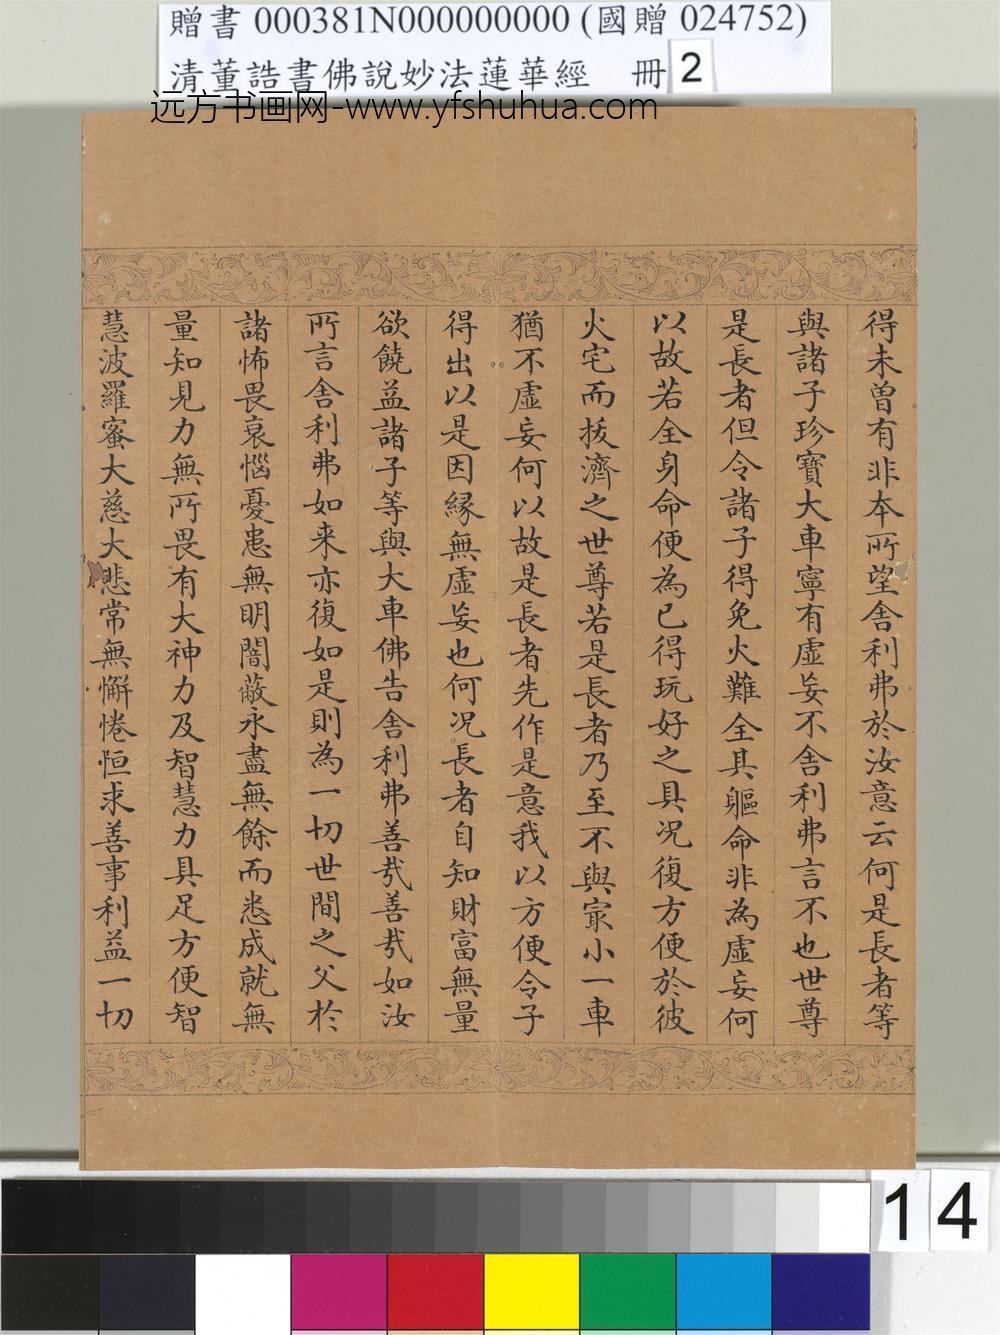 贈書 000381N000000000 (國贈 024752)
清董誥書佛說妙法蓮華經 冊 2
远方书画网-www.yfshuhua.com
得未曾有非本所望舍利弗於汝意云何是長者等
與諸子珍寶大車寧有虛妄不舍利弗言不也世尊
是長者但令諸子得免火難全其軀命非為虛妄何
以故若全身命便為已得玩好之具况復方便於彼
火宅而拔濟之世尊若是長者乃至不與冣小一車
猶不虛妄何以故是長者先作是意我以方便令子
得出以是因緣無虛妄也何况長者自知財富無量
欲饒益諸子等與大車佛告舍利弗善㢤善㢤如汝
所言舍利弗如来亦復如是則為一切世間之父於
諸怖畏衰惱憂患無明闇蔽永盡無餘而悉成就無
量知見力無所畏有大神力及智慧力具足方便智
慧波羅蜜大慈大悲常無懈惓恒求善事利益一切
14